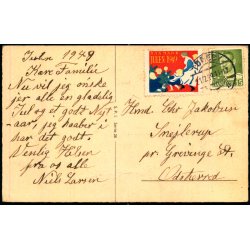 Julen 1949
Kære Familie
Nu vil jeg ønske
jer alle en glædelig
Jul og et godt Nyt-
aar, jeg haaber i
har det godt.
Venlig Hilsen
fra og alle
Niels Larsen
JULEN 1949
15
Hrnd Chr Jakobsen
Snejlerup
pr. Grevinge St
Odsherred